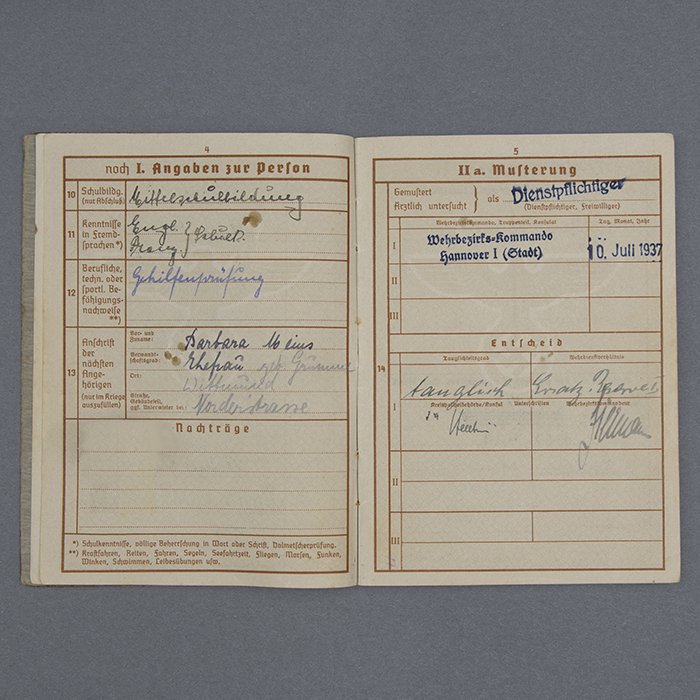 4
noch I. Angaben zur Person
10 Schulbildg. (nur Abschluß) Mittelschulbildung
11 Kenntnisse in Fremdsprachen*) Engl. Franz. } Schulk.
12 Berufliche, techn. oder sportl. Befähigungsnachweise **) Gehilfenprüfung
13 Anschrift der nächsten Angehörigen (nur im Kriege auszufüllen)
Vor- und Zuname: Barbara Meins
Verwandtschaftsgrad: Ehefrau geb. Grümmel
Ort: Wittmund
Straße, Gebäudeteil, ggf. Unterwieter bei: Norderstrasse
Nachträge
*) Schulkenntnisse, völlige Beherrschung in Wort oder Schrift, Dolmetscherprüfung.
**) Kraftfahren, Reiten, Fahren, Segeln, Seefahrtzeit, Fliegen, Morsen, Funken,
Winken, Schwimmen, Leibesübungen usw.
5
II a. Musterung
Gemustert
Ärztlich untersucht } als Dienstpflichtiger
(Dienstpflichtiger, Freiwilliger)
Wehrbezirkskommando, Truppenteil, Konsulat Tag, Monat, Jahr
I Wehrbezirks-Kommando
Hannover I (Stadt) 10. Juli 1937
II
III
Entscheid
14
Tauglichkeitsgrad Wehrdienstverhältnis
I tauglich Ersatz-Reserve I
Kreispolizeibehörde/Konsul Unterschriften Wehrbezirkskommandeur
II
III